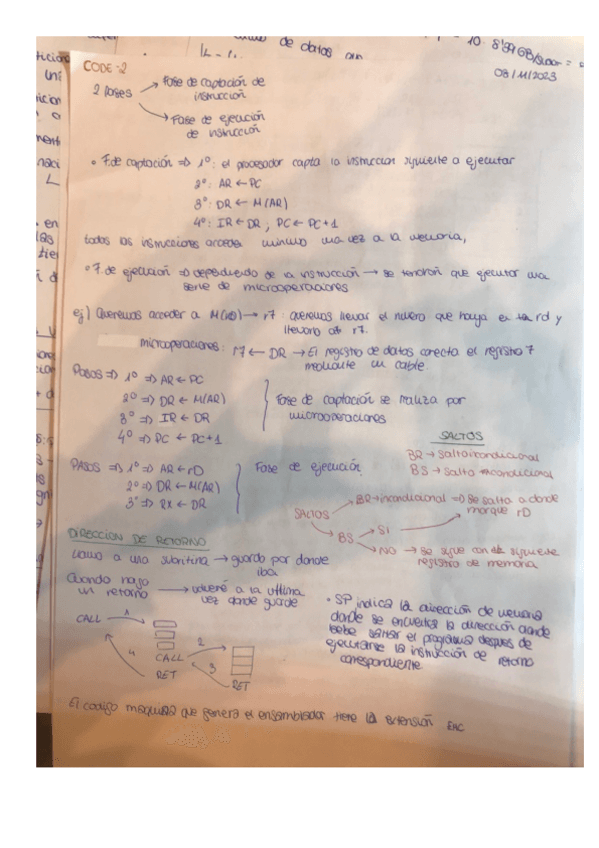 de datos
10. 8'39 GB/
08/11/2023
CODE-2
2 fases → Fase de captación de instrucción
→ Fase de ejecución de instrucción
• F.de captación => 1º: el procesador capta la instruccion siguiente a ejecutar
2º: AR ← PC
3º: DR ← M(AR)
4º: IR ← DR ; PC ← PC+1
todas las instrucciones acceden mínimo una vez a la memoria,
• F. de ejecución => dependiendo de la instrucción → se tendrán que ejecutar una
serie de microoperaciones
ej) Queremos acceder a → r7 : queremos llevar el número que haya en rd y
llevarlo al r7.
microoperaciones: r7 ← DR → El registro de datos conecta el registro 7
mediante un cable.
Pasos => 1º => AR ← PC
2º => DR ← M(AR)
3º => IR ← DR
4º => PC ← PC+1
Fase de captación se realiza por
microoperaciones
PASOS => 1º => AR ← rD
2º => DR ← M(AR)
3º => RX ← DR
Fase de ejecución
SALTOS
BR → salto incondicional
BS → salto
SALTOS → BR → incondicional => Se salta a donde
marque rD
→ BS → SI
→ NO → Se sigue con el siguiente
registro de memoria
DIRECCION DE RETORNO
Llamo a una subrutina → guardo por donde
iba
Cuando hago
un retorno → volveré a la última
vez donde guarde
CALL 1
4 CALL 2
RET 3
RET
• SP indica la dirección de memoria
donde se encuentra la dirección donde
debe saltar el programa despues de
ejecutarse la instrucción de retorno
correspondiente.
El codigo maquina que genera el ensamblador tiere la extensión EHC